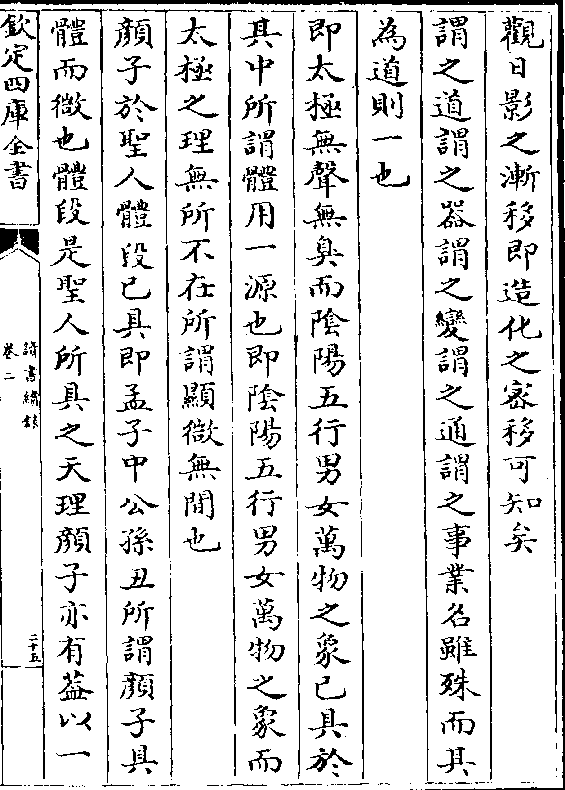 觀日影之漸移即造化之宻移可知矣
謂之道謂之器謂之變謂之通謂之事業名雖殊而其
為道則一也
即太極無聲無臭而陰陽五行男女萬物之象已具於
其中所謂體用一源也即陰陽五行男女萬物之象而
太極之理無所不在所謂顯微無間也
顔子於聖人體段已具即孟子中公孫丑所謂顔子具
體而微也體段是聖人所具之天理顔子亦有葢以一
欽定四庫全書
讀書續錄
卷二
二十五